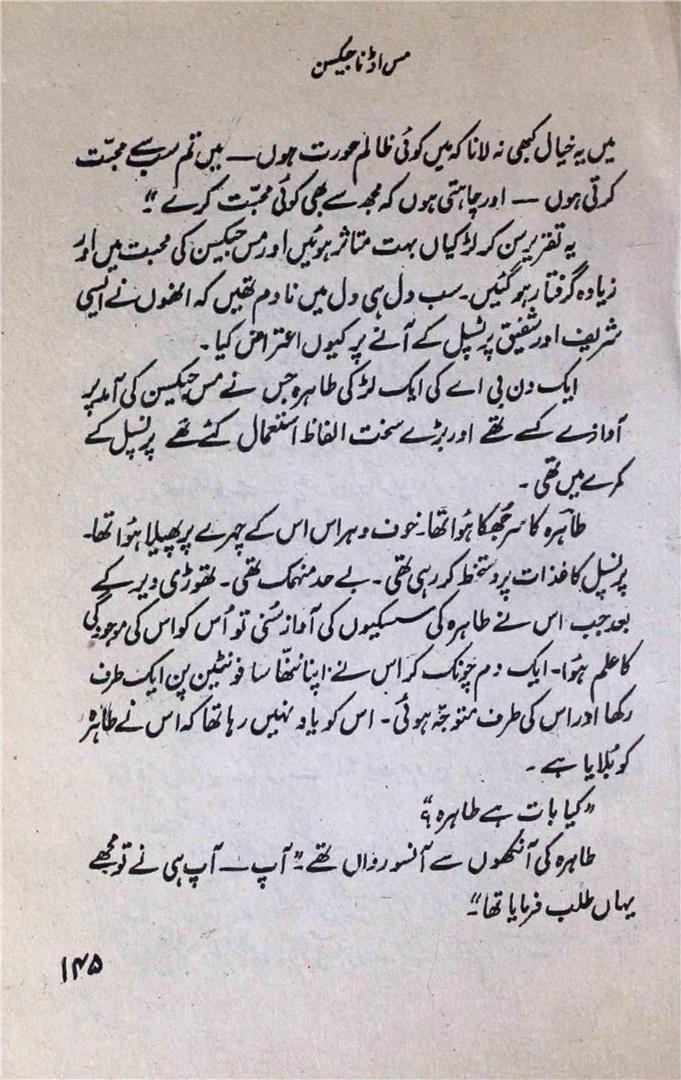 مس اڈنا جیکسن
میں یہ خیال کبھی نہ لانا کہ میں کوئی ظالم عورت ہوں — میں تم سب سے محبّت
کرتی ہوں — اور چاہتی ہوں کہ مجھ سے بھی کوئی محبّت کرے“
یہ تقریر سن کر لڑکیاں بہت متاثر ہوئیں اور مس جیکسن کی محبت میں اور
زیادہ گرفتار ہو گئیں۔ سب دل ہی دل میں نادم تھیں کہ انھوں نے ایسی
شریف اور شفیق پرنسپل کے آنے پر کیوں اعتراض کیا۔
ایک دن بی اے کی ایک لڑکی طاہرہ جس نے مس جیکسن کی آمد پر
آوازے کسے تھے اور بڑے سخت الفاظ استعمال کئے تھے پرنسپل کے
کمرے میں تھی۔
طاہرہ کا سر جُھکا ہُوا تھا۔ خوف و ہراس اس کے چہرے پر پھیلا ہُوا تھا۔
پرنسپل کاغذات پر دستخط کر رہی تھی۔ بے حد منہمک تھی۔ تھوڑی دیر کے
بعد جب اس نے طاہرہ کی سسکیوں کی آواز سُنی تو اُس کو اس کی موجودگی
کا علم ہُوا۔ ایک دم چونک کر اس نے اپنا ننھّا سا فونٹین پن ایک طرف
رکھا اور اس کی طرف متوجّہ ہوئی۔ اس کو یاد نہیں رہا تھا کہ اس نے طاہرہ
کو بُلایا ہے۔
”کیا بات ہے طاہرہ؟“
طاہرہ کی آنکھوں سے آنسو رواں تھے۔ ”آپ — آپ ہی نے تو مجھے
یہاں طلب فرمایا تھا“۔
۱۴۵